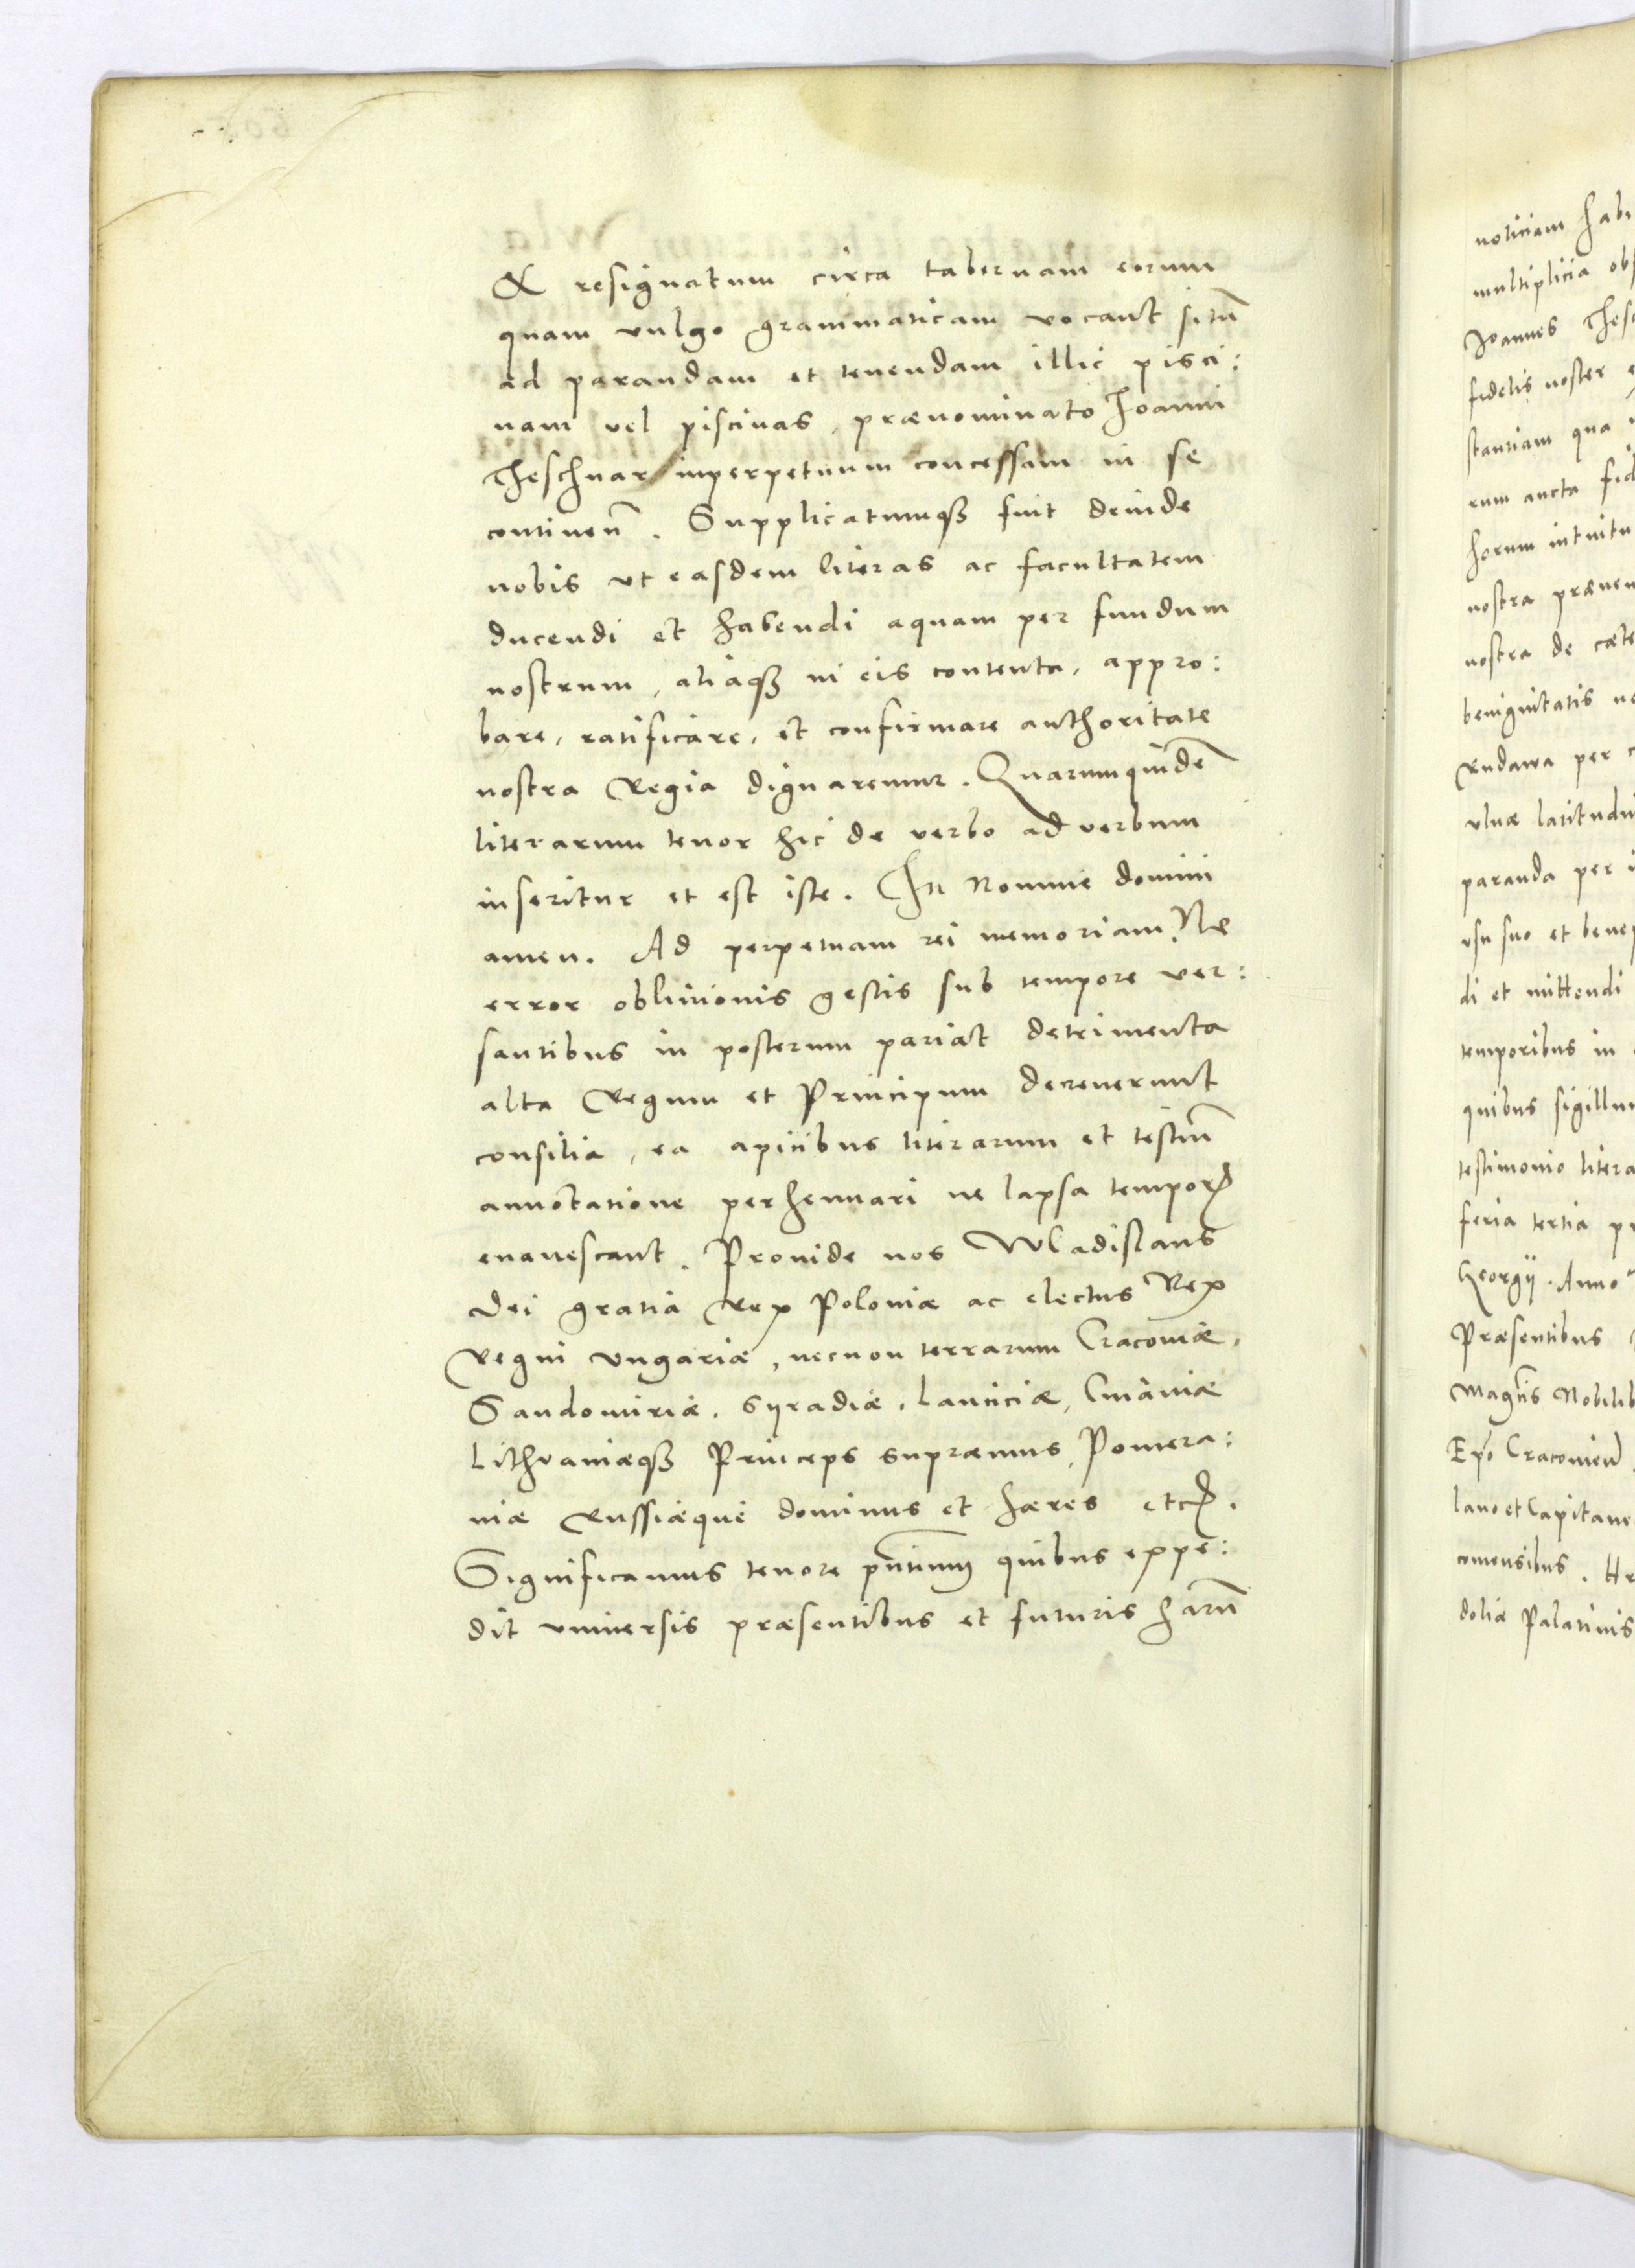 & resignatum circa tabernam eorum
quam vulgo grammaticam vocant sitū
ad parandam et tenendam illic pisci:
nam vel piscinas, prænominato Joanni
Theschnar inperpetuum concessam in se
continen̄. Supplicatumqꝫ fuit deinde
nobis vt easdem literas ac facultatem
ducendi et habendi aquam per fundum
nostrum, aliaqꝫ in eis contenta, appro:
bare, ratificare, et confirmare authoritate
nostra Regia dignaremur. Quarumquidē
literarum tenor hic de verbo ad verbum
inseritur et est iste. In Nomine domini
amen. Ad perpetuam rei memoriam. Ne
error obliuionis gestis sub tempore ver:
santibus in posterum pariat detrimenta
alta Regum et Principum decreuerunt
consilia, ea apicibus literarum et testiū
annotatione perhennari ne lapsa temporꝭ
euanescant. Prouide nos Wladislaus
Dei gratia Rex Poloniæ ac electus Rex
Regni Vngariæ, necnon terrarum Cracouiæ,
Sandomiriæ, Syradiæ, Lanciciæ, Cuiauiæ
Lithvaniæqꝫ Princeps supræmus, Pomera:
niæ Russiæque dominus et hæres etcꝭ.
Significamus tenore pn̄tium quibus expe:
dit vniuersis præsentibus et futuris harū
noticiam habi
multiplicia obs
Joannes Thesc
fidelis noster e
stantiam qua
rum aucta fid
horum intuitu
nostra præuen
nostra de cæte
benignitatis no
Rudawa per c
vlnæ latitudi
paranda per i
vsu suo et benep
di et mittendi
temporibus in
quibus sigillu
testimonio litera
feria tertia pr
Georgij. Anno
Præsentibus
Magcis Nobilib
Epo Cracouien
lano et Capitane
comensibus. He
doliæ Palatinis